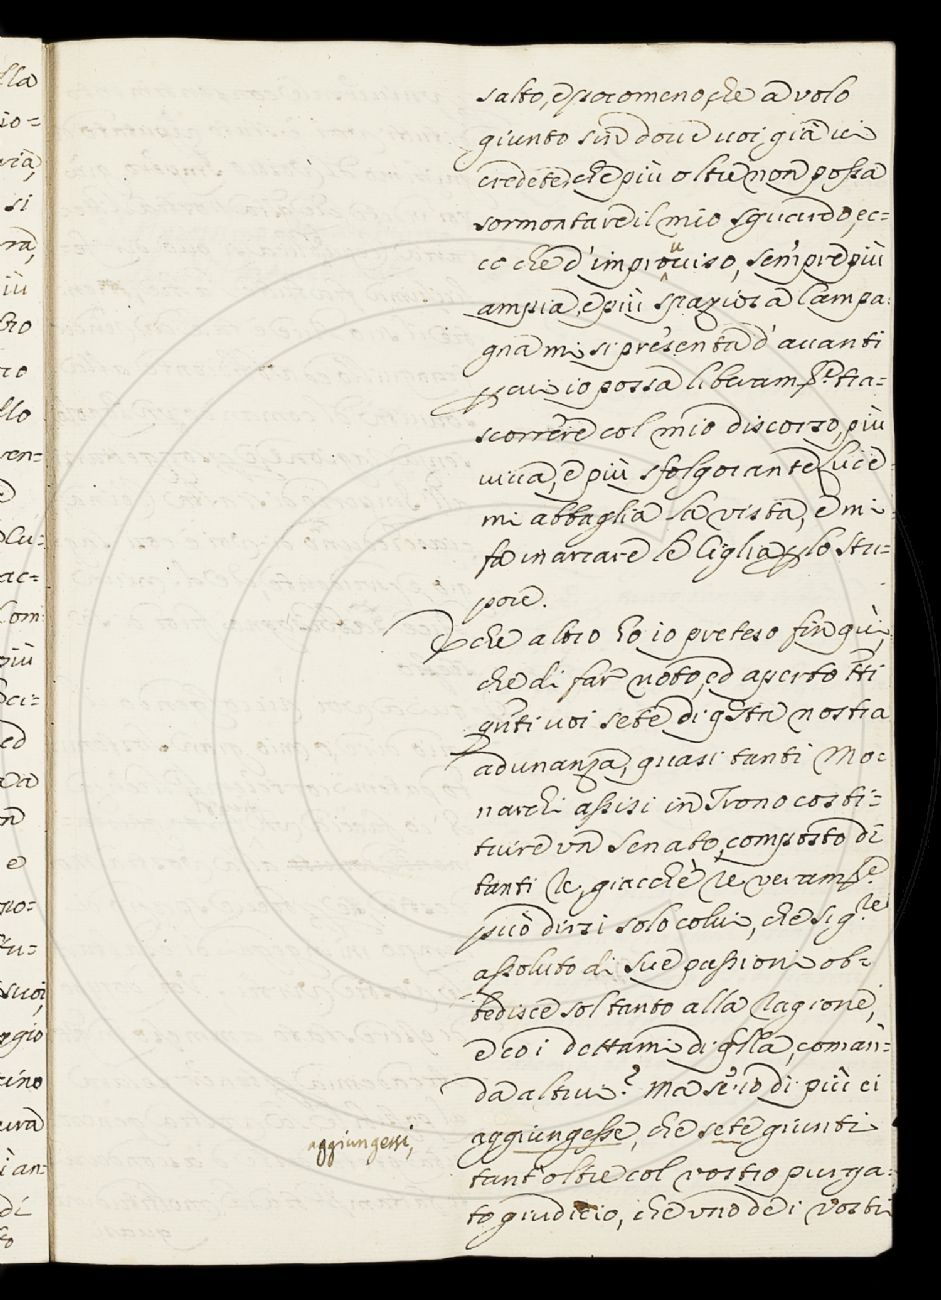 salto, e poco meno che a volo
giunto sin doue uoi già ui
credete, che più oltre non possa
sormontare il mio sguardo, ec=
co che d'improuiso, sempre più
ampia, e più spaziosa Campa=
gna mi si presenta d'auanti
per cui io possa liberamte tra=
scorrere col mio discorso, più
uiua, e più sfolgorante luce
mi abbaglia la vista, e mi
fa inarcare le Ciglia per lo stu=
pore.
E che altro hò io preteso fin quì,
che di far noto, ed aperto tti
qnti uoi sete di qsta nostra
adunanza, quasi tanti Mo=
narchi assisi in Trono costi=
tuire vn Senato, composto di
tanti Re, giacchè Re ueramte
può dirsi solo colui, che sigre
assoluto di sue passioni ob=
bedisce soltanto alla Ragione,
e co i dettami di qlla, coman=
da altrui? Ma se io di più ci
aggiungesse, che sete giunti
aggiungessi,
tant'oltre col vostro purga=
to giudicio, che vno de i vostri
lla
io=
ria,
si
ra,
iù
llo
uen=
lu=
ac=
Com
più
ed
e
tu=
suoi
ggio
i an=
di